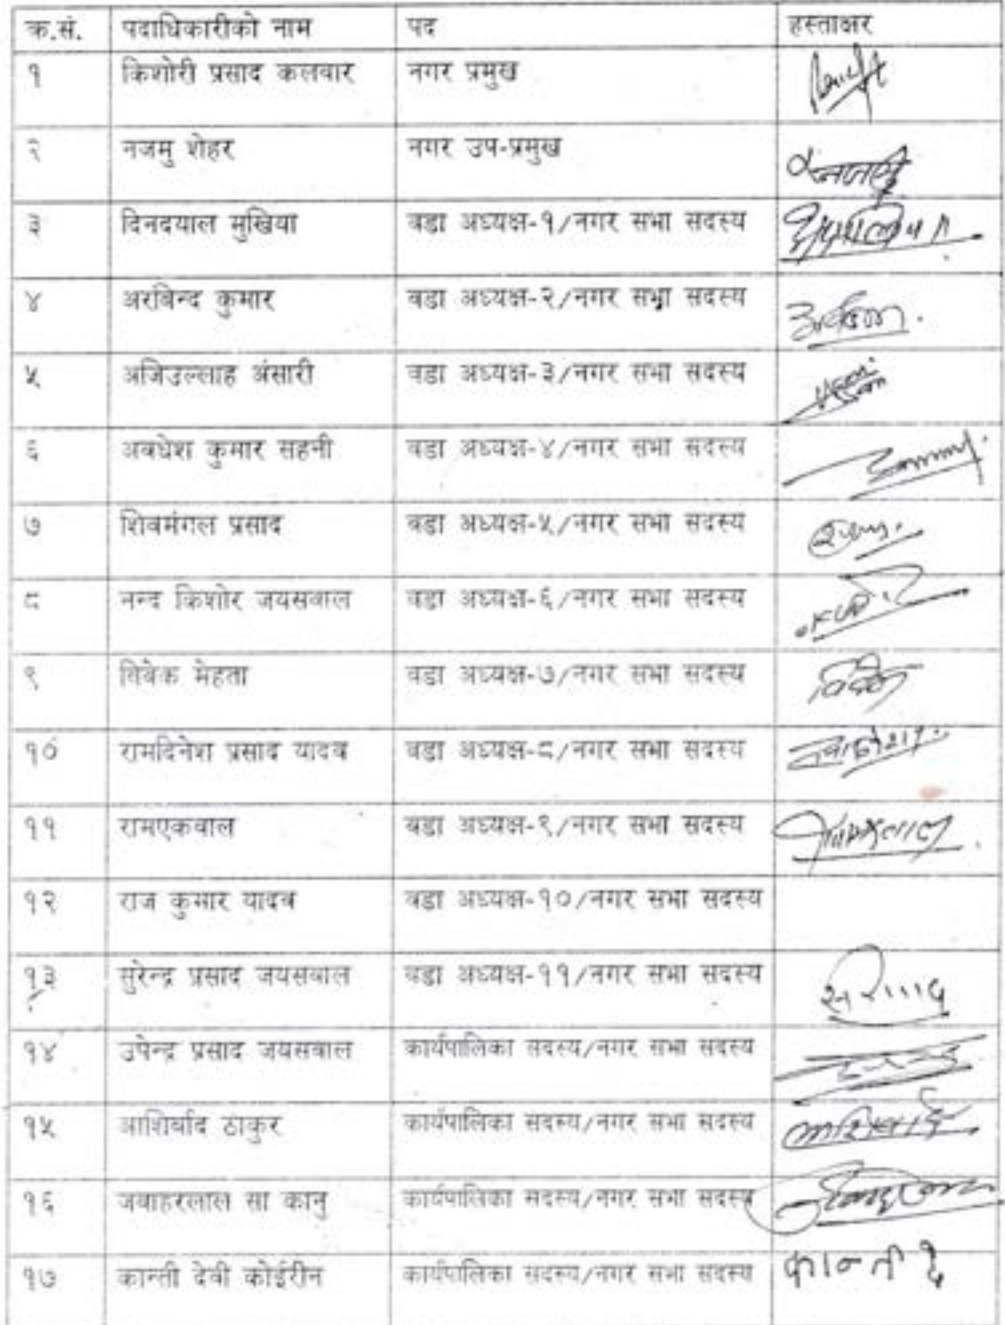 क्र.सं. पदाधिकारीको नाम पद हस्ताक्षर
१ किशोरी प्रसाद कलवार नगर प्रमुख
२ नजमु शेहर नगर उप-प्रमुख
३ दिनदयाल मुखिया वडा अध्यक्ष-१/नगर सभा सदस्य
४ अरबिन्द कुमार वडा अध्यक्ष-२/नगर सभा सदस्य
५ अजिउल्लाह अंसारी वडा अध्यक्ष-३/नगर सभा सदस्य
६ अवधेश कुमार सहनी वडा अध्यक्ष-४/नगर सभा सदस्य
७ शिवमंगल प्रसाद वडा अध्यक्ष-५/नगर सभा सदस्य
८ नन्द किशोर जयसवाल वडा अध्यक्ष-६/नगर सभा सदस्य
९ विवेक मेहता वडा अध्यक्ष-७/नगर सभा सदस्य
१० रामदिनेश प्रसाद यादव वडा अध्यक्ष-८/नगर सभा सदस्य
११ रामएकवाल वडा अध्यक्ष-९/नगर सभा सदस्य
१२ राज कुमार यादव वडा अध्यक्ष-१०/नगर सभा सदस्य
१३ सुरेन्द्र प्रसाद जयसवाल वडा अध्यक्ष-११/नगर सभा सदस्य
१४ उपेन्द्र प्रसाद जयसवाल कार्यपालिका सदस्य/नगर सभा सदस्य
१५ आशिर्वाद ठाकुर कार्यपालिका सदस्य/नगर सभा सदस्य
१६ जवाहरलाल सा कानु कार्यपालिका सदस्य/नगर सभा सदस्य
१७ कान्ती देवी कोईरीन कार्यपालिका सदस्य/नगर सभा सदस्य